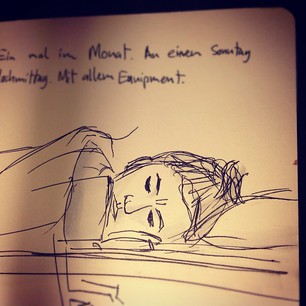 Ein mal im Monat. An einem Sonntag
Nachmittag. Mit allem Equipment.